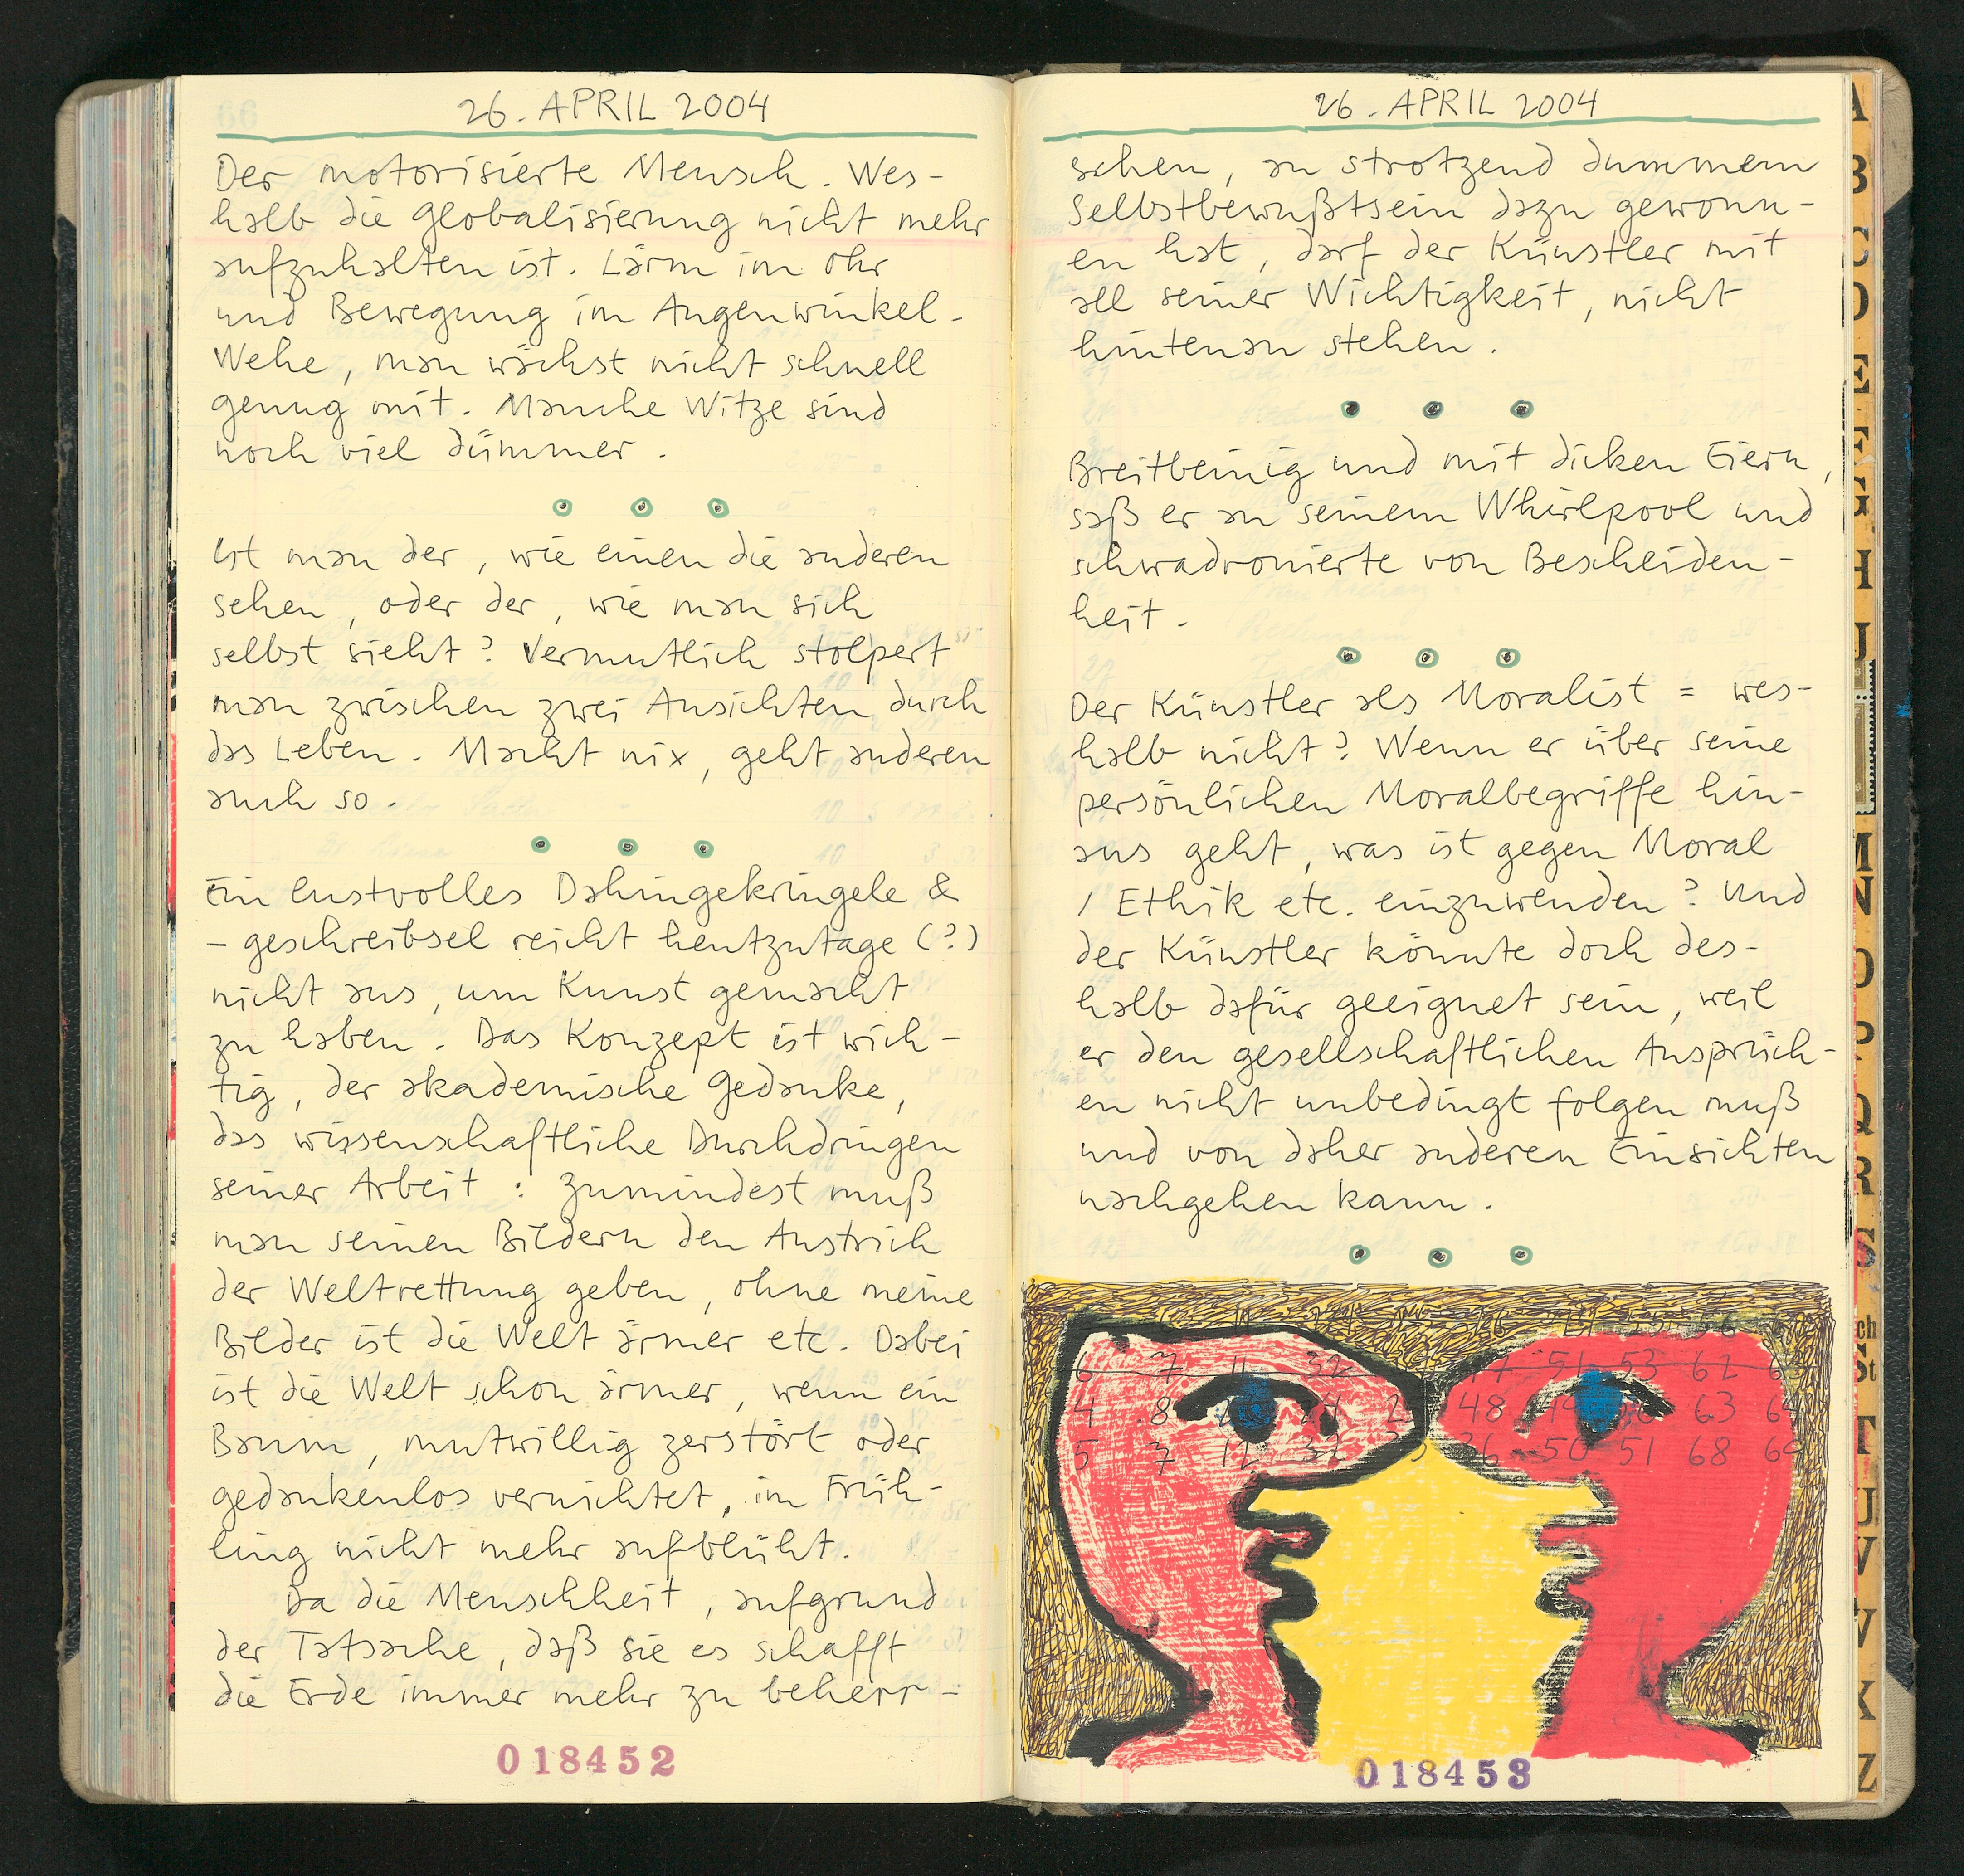 26. APRIL 2004
Der motorisierte Mensch. Wes-
halb die Globalisierung nicht mehr
aufzuhalten ist. Lärm im Ohr
und Bewegung im Augenwinkel.
Wehe, man wächst nicht schnell
genug mit. Manche Witze sind
noch viel dümmer.
Ist man der, wie einen die anderen
sehen, oder der, wie man sich
selbst sieht? Vermutlich stolpert
man zwischen zwei Ansichten durch
das Leben. Macht nix, geht anderen
auch so.
Ein lustvolles Dahingekringele &
- geschreibsel reicht heutzutage (?)
nicht aus, um Kunst gemacht
zu haben. Das Konzept ist wich-
tig, der akademische Gedanke,
das wissenschaftliche Durchdringen
seiner Arbeit: Zumindest muß
man seinen Bildern den Anstrich
der Weltrettung geben, ohne meine
Bilder ist die Welt ärmer etc. Dabei
ist die Welt schon ärmer, wenn ein
Baum, mutwillig zerstört oder
gedankenlos vernichtet, im Früh-
ling nicht mehr aufblüht.
Da die Menschheit, aufgrund
der Tatsache, daß sie es schafft
die Erde immer mehr zu beherr-
018452
26. APRIL 2004
schen, an strotzend dummem
Selbstbewußtsein dazu gewonn-
en hat, darf der Künstler mit
all seiner Wichtigkeit, nicht
hintenan stehen.
Breitbeinig und mit dicken Eiern,
saß er an seinem Whirlpool und
schwadronierte von Bescheiden-
heit.
Der Künstler als Moralist = wes-
halb nicht? Wenn er über seine
persönlichen Moralbegriffe hin-
aus geht, was ist gegen Moral
/ Ethik etc. einzuwenden? Und
der Künstler könnte doch des-
halb dafür geeignet sein, weil
er den gesellschaftlichen Ansprüch-
en nicht unbedingt folgen muß
und von daher anderen Einsichten
nachgehen kann.
6 7 11 32 51 53 62
4 8 48 63
5 7 12 32 36 50 51 68 69
018453
A
B
C
D
E
F
G
H
J
M
N
O
P
Q
R
S
Sch
St
T
U
V
W
X
Z